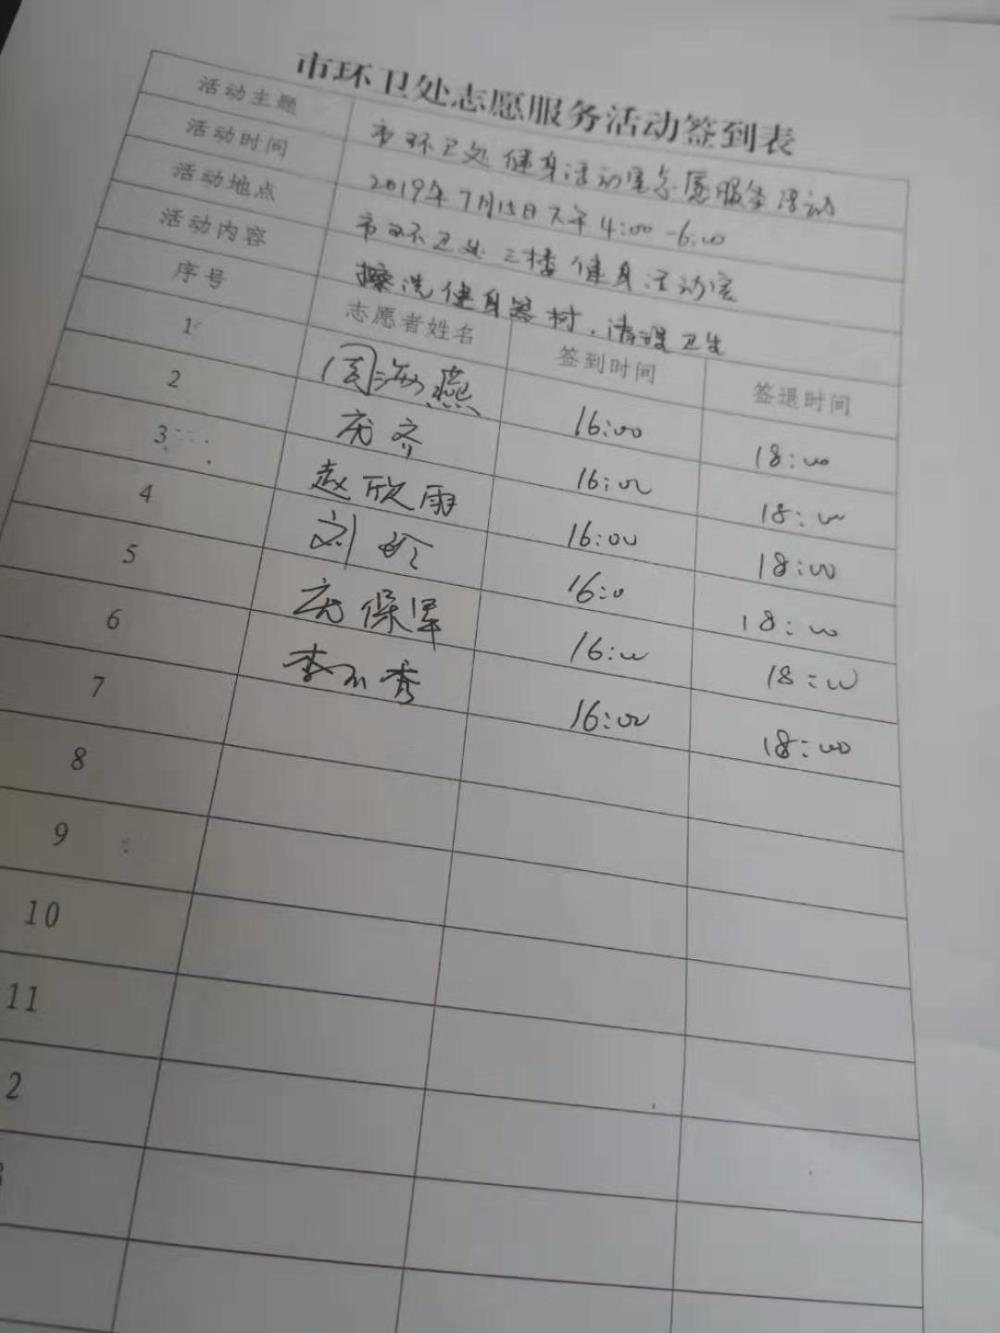 市环卫处志愿服务活动签到表
活动主题 市环卫处健身活动室志愿服务活动
活动时间 2019年7月15日下午4:00-6:00
活动地点 市环卫处三楼健身活动室
活动内容 擦洗健身器材,清理卫生
序号 志愿者姓名 签到时间 签退时间
1 周海燕 16:00 18:00
2 齐 16:00 18:00
3 赵欣雨 16:00 18:00
4 刘 16:0 18:00
5 保军 16:00 18:00
6 李 秀 16:00 18:00
7
8
9
10
11
2